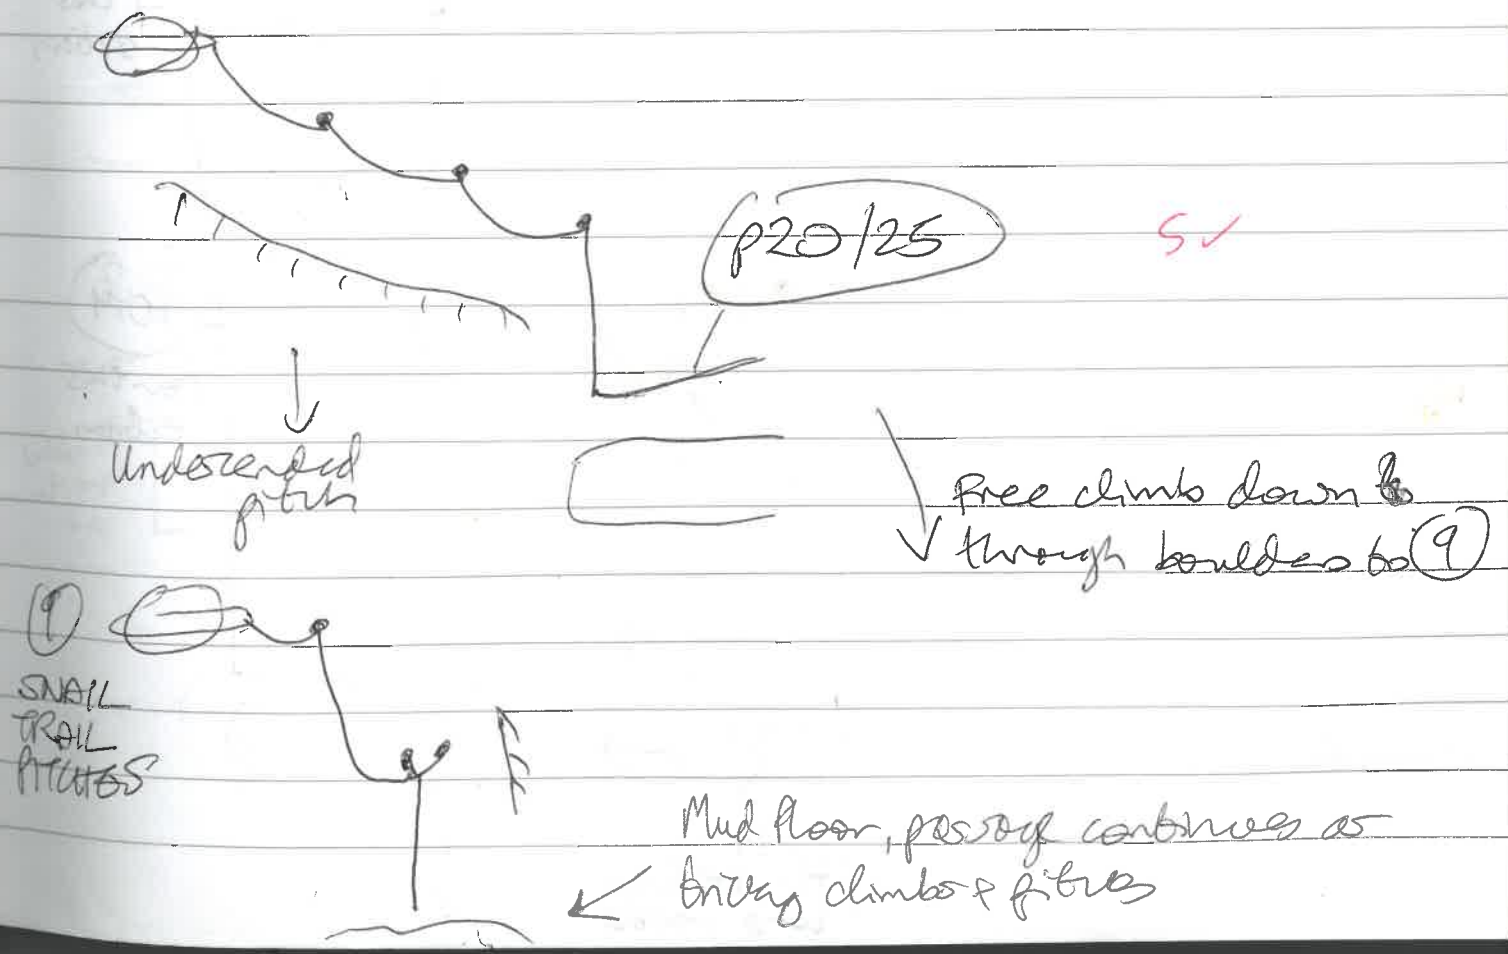 p20/25
S✓
Undescended
pitch
Free climb down to
through boulders to 9
9
SNAIL
TRAIL
PITCHES
Mud floor, passage continues as
tricky climbs & pitches